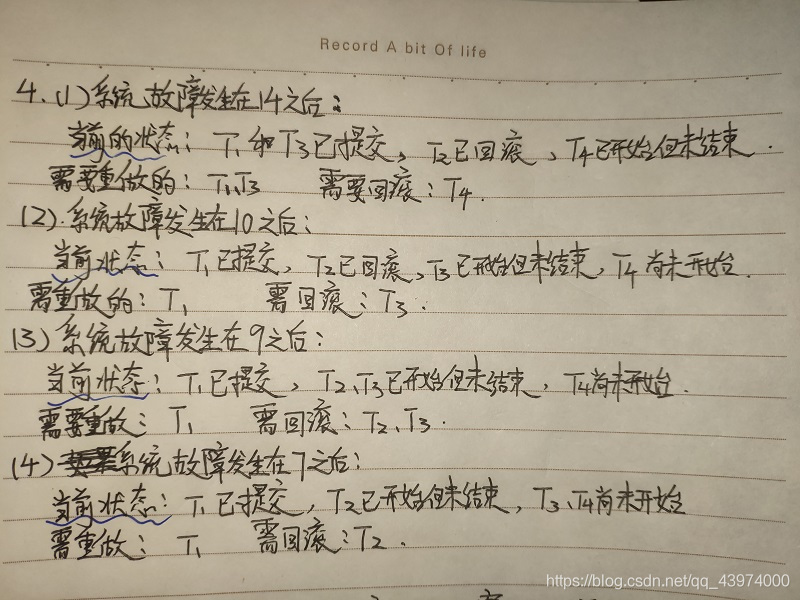 Record A bit Of life
4.(1)系统故障发生在14之后：
当前的状态：T₁和T₃已提交，T₂已回滚，T₄已开始但未结束.
需要重做的：T₁,T₃ 需要回滚：T₄.
(2).系统故障发生在10之后：
当前状态：T₁已提交，T₂已回滚,T₃已开始但未结束，T₄尚未开始.
需重做的：T₁ 需回滚：T₃.
(3)系统故障发生在9之后：
当前状态：T₁已提交，T₂、T₃已开始但未结束，T₄尚未开始.
需要重做：T₁ 需回滚：T₂、T₃.
(4)系统故障发生在7之后：
当前状态：T₁已提交，T₂已开始但未结束，T₃、T₄尚未开始
需重做：T₁ 需回滚：T₂.
https://blog.csdn.net/qq_43974000